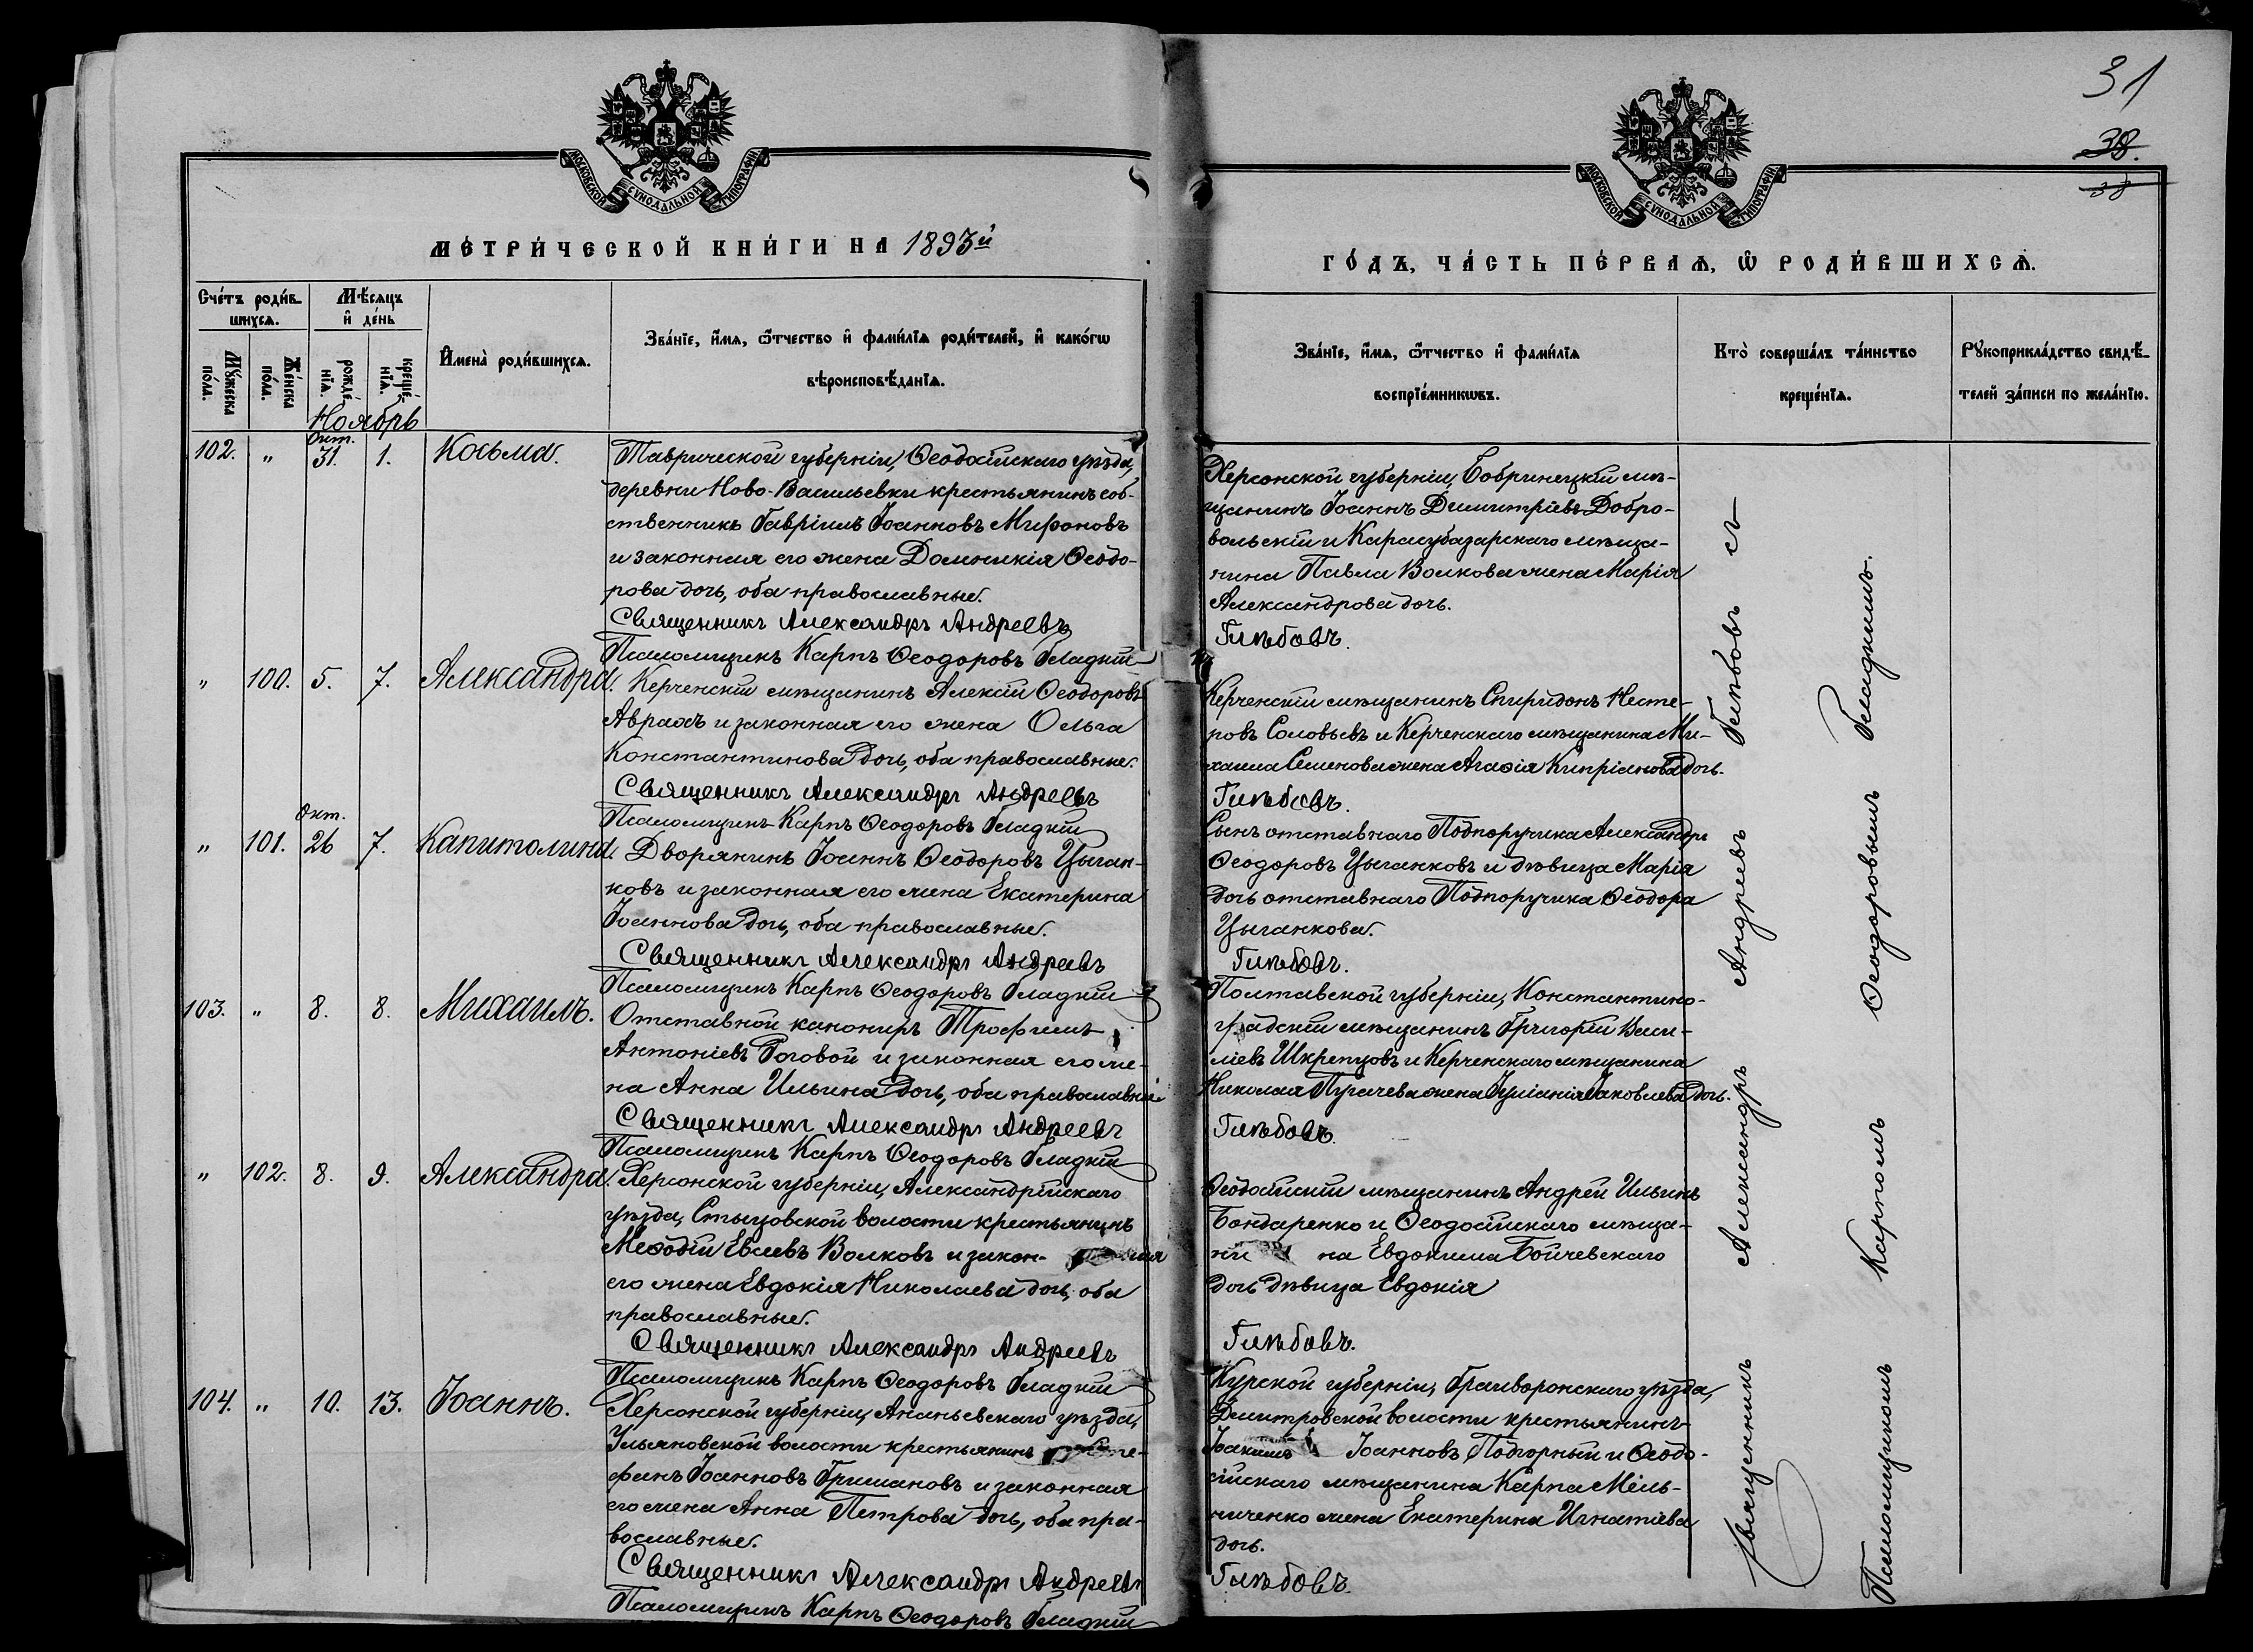 31
38.
38
МОСКОВСКОЙ СѴНОДАЛЬНОЙ ТИПОГРАФІИ
МОСКОВСКОЙ СѴНОДАЛЬНОЙ ТИПОГРАФІИ
МЕТРИ́ЧЕСКОЙ КНИ́ГИ НА 1893й
ГО́ДЪ, ЧА́СТЬ ПЕ́РВАѦ, Ѡ҆ РОДИ́ВШИХСѦ.
Сче́тъ роди́в-
шихсѧ.
Мѣ́сѧцъ
и҆ де́нь
Мꙋ́жеска
по́ла.
Же́нска
по́ла.
рожде́-
нїѧ.
креще́-
нїѧ.
И҆мена̀ роди́вшихсѧ.
Зва́нїе, и҆́мѧ, ѻ҆́тчество и҆ фами́лїѧ роди́телей, и҆ како́гѡ
вѣроисповѣ́данїѧ.
Зва́нїе, и҆́мѧ, ѻ҆́тчество и҆ фами́лїѧ
воспрїе́мникѡвъ.
Кто̀ соверша́лъ та́инство
креще́нїѧ.
Рꙋкоприкла́дство свидѣ́-
телей за́писи по жела́нїю.
Ноябрь
102. " Окт. 31. 1. Косьма.
Таврической губерніи, Ѳеодосійскаго уѣзда,
деревни Ново-Васильевки крестьянинъ соб-
ственникъ Гавріилъ Іоанновъ Мироновъ
и законная его жена Домникія Ѳеодо-
рова дочь, оба православные.
Священникъ Александръ Андреевъ
Псаломщикъ Карпъ Ѳеодоровъ Гладкій
Херсонской губерніи, Бобринецкій мѣ-
щанинъ Іоаннъ Димитріевъ Добро-
вольскій и Карасубазарскаго мѣща-
нина Павла Волкова жена Марія
Александрова дочь.
Глѣбовъ.
" 100. 5. 7. Александра.
Керченскій мѣщанинъ Алексій Ѳеодоровъ
Аврахъ и законная его жена Ольга
Константинова дочь, оба православные.
Священникъ Александръ Андреевъ
Псаломщикъ Карпъ Ѳеодоровъ Гладкій
Керченскій мѣщанинъ Спиридонъ Несте-
ровъ Соловьевъ и Керченскаго мѣщанина Ми-
хаила Семенова жена Агаѳія Кипріанова дочь.
Глѣбовъ.
" 101. Окт. 26 7. Капитолина.
Дворянинъ Іоаннъ Ѳеодоровъ Цыган-
ковъ и законная его жена Екатерина
Іоаннова дочь, оба православные.
Священникъ Александръ Андреевъ
Псаломщикъ Карпъ Ѳеодоровъ Гладкій
Сынъ отставнаго Подпоручика Александръ
Ѳеодоровъ Цыганковъ и дѣвица Марія
дочь отставнаго Подпоручика Ѳеодора
Цыганкова.
Глѣбовъ.
103. " 8. 8. Михаилъ.
Отставной канониръ Трофимъ
Антоніевъ Роговой и законная его же-
на Анна Ильина дочь, оба православные
Священникъ Александръ Андреевъ
Псаломщикъ Карпъ Ѳеодоровъ Гладкій
Полтавской губерніи, Константино-
градскій мѣщанинъ Григорій Васи-
ліевъ Шкрепцовъ и Керченскаго мѣщанина
Николая Пугачева жена Іуліанія Іаковлева дочь.
Глѣбовъ.
" 102. 8. 9. Александра.
Херсонской губерніи, Александрійскаго
уѣзда, волости крестьянинъ
Меѳодій Евсевъ Волковъ и закон-
его жена Евдокія Николаева дочь, оба
православные.
Священникъ Александръ Андреевъ
Псаломщикъ Карпъ Ѳеодоровъ Гладкій
Ѳеодосійскій мѣщанинъ Андрей Ильинъ
Бондаренко и Ѳеодосійскаго мѣща-
ни на Евдокима Бойчевскаго
дочь дѣвица Евдокія
Глѣбовъ.
104. " 10. 13. Іоаннъ.
Херсонской губерніи, Ананьевскаго уѣзда,
Ульяновской волости крестьянинъ Сте-
фанъ Іоанновъ Гришановъ и законная
его жена Анна Петрова дочь, оба пра-
вославные.
Священникъ Александръ Андреевъ
Псаломщикъ Карпъ Ѳеодоровъ Гладкій
Курской губерніи, Грайворонскаго уѣзда,
Дмитровской волости крестьянинъ
Іоакимъ Іоанновъ Подгорный и Ѳеодо-
сійскаго мѣщанина Карпа Мель-
ниченко жена Екатерина Игнатіева
дочь.
Глѣбовъ.
Священникъ Александръ Андреевъ Глѣбовъ съ
Псаломщикомъ Карпомъ Ѳеодоровымъ Гладкимъ.